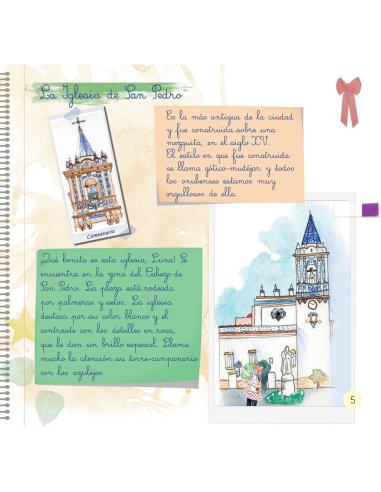 La Iglesia de San Pedro
Es la más antigua de la ciudad
y fue construida sobre una
mezquita, en el siglo XV.
El estilo en que fue construida
se llama gótico-mudéjar y todos
los onubenses estamos muy
orgullosos de ella.
Campanario
¡Qué bonita es esta iglesia, Luna! Se
encuentra en la zona del Cabezo de
San Pedro. La plaza está rodeada
por palmeras y setos. La iglesia
destaca por su color blanco y el
contraste con los detalles en rosa,
que le dan un brillo especial. Llama
mucho la atención su torre-campanario
con los azulejos.
5